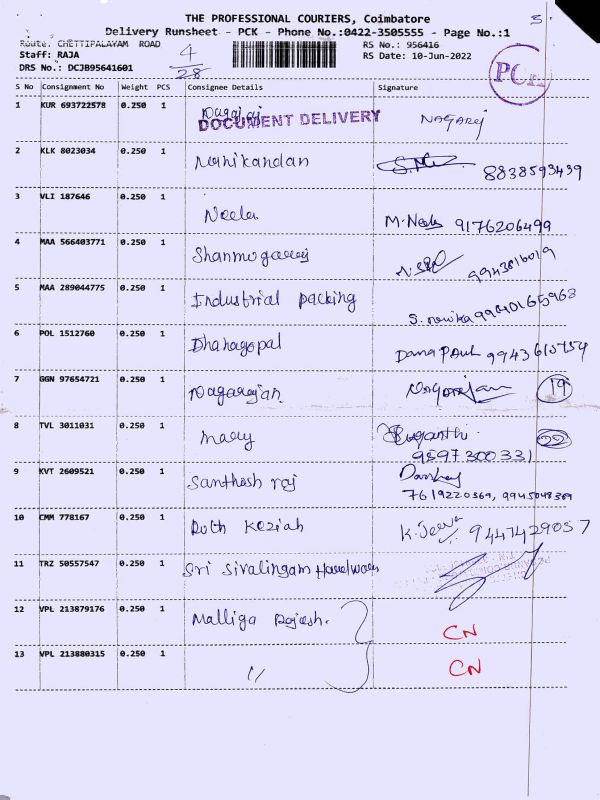 THE PROFESSIONAL COURIERS, Coimbatore
3.
Delivery Runsheet - PCK - Phone No.:0422-3505555 - Page No.:1
Route: CHETTIPALAYAM ROAD
4/28
RS No.: 956416
Staff: RAJA
RS Date: 10-Jun-2022
DRS No.: DCJB95641601
PCK
S No Consignment No Weight PCS Consignee Details Signature
1 KUR 693722578 0.250 1 Nagaraj NAGARAJ
DOCUMENT DELIVERY
2 KLK 8023034 0.250 1 Manikandan 8838593439
3 VLI 187646 0.250 1 Neela M. Neela 9176206499
4 MAA 566403771 0.250 1 Shanmugaraj 9943816019
5 MAA 289044775 0.250 1 Industrial packing 9940165963
6 POL 1512760 0.250 1 Dhanagopal 9943615754
7 GGN 97654721 0.250 1 Nagarajan 19
8 TVL 3011031 0.250 1 Mary Suganthi 22
9597300331
9 KVT 2609521 0.250 1 Santhosh raj
7619220369, 9945048369
10 CMM 778167 0.250 1 Ruth Keziah K. Jeeva 9447429057
11 TRZ 50557547 0.250 1 Sri Sivalingam Hardwares
12 VPL 213879176 0.250 1 Malliga Rajesh. CN
13 VPL 213880315 0.250 1 " CN